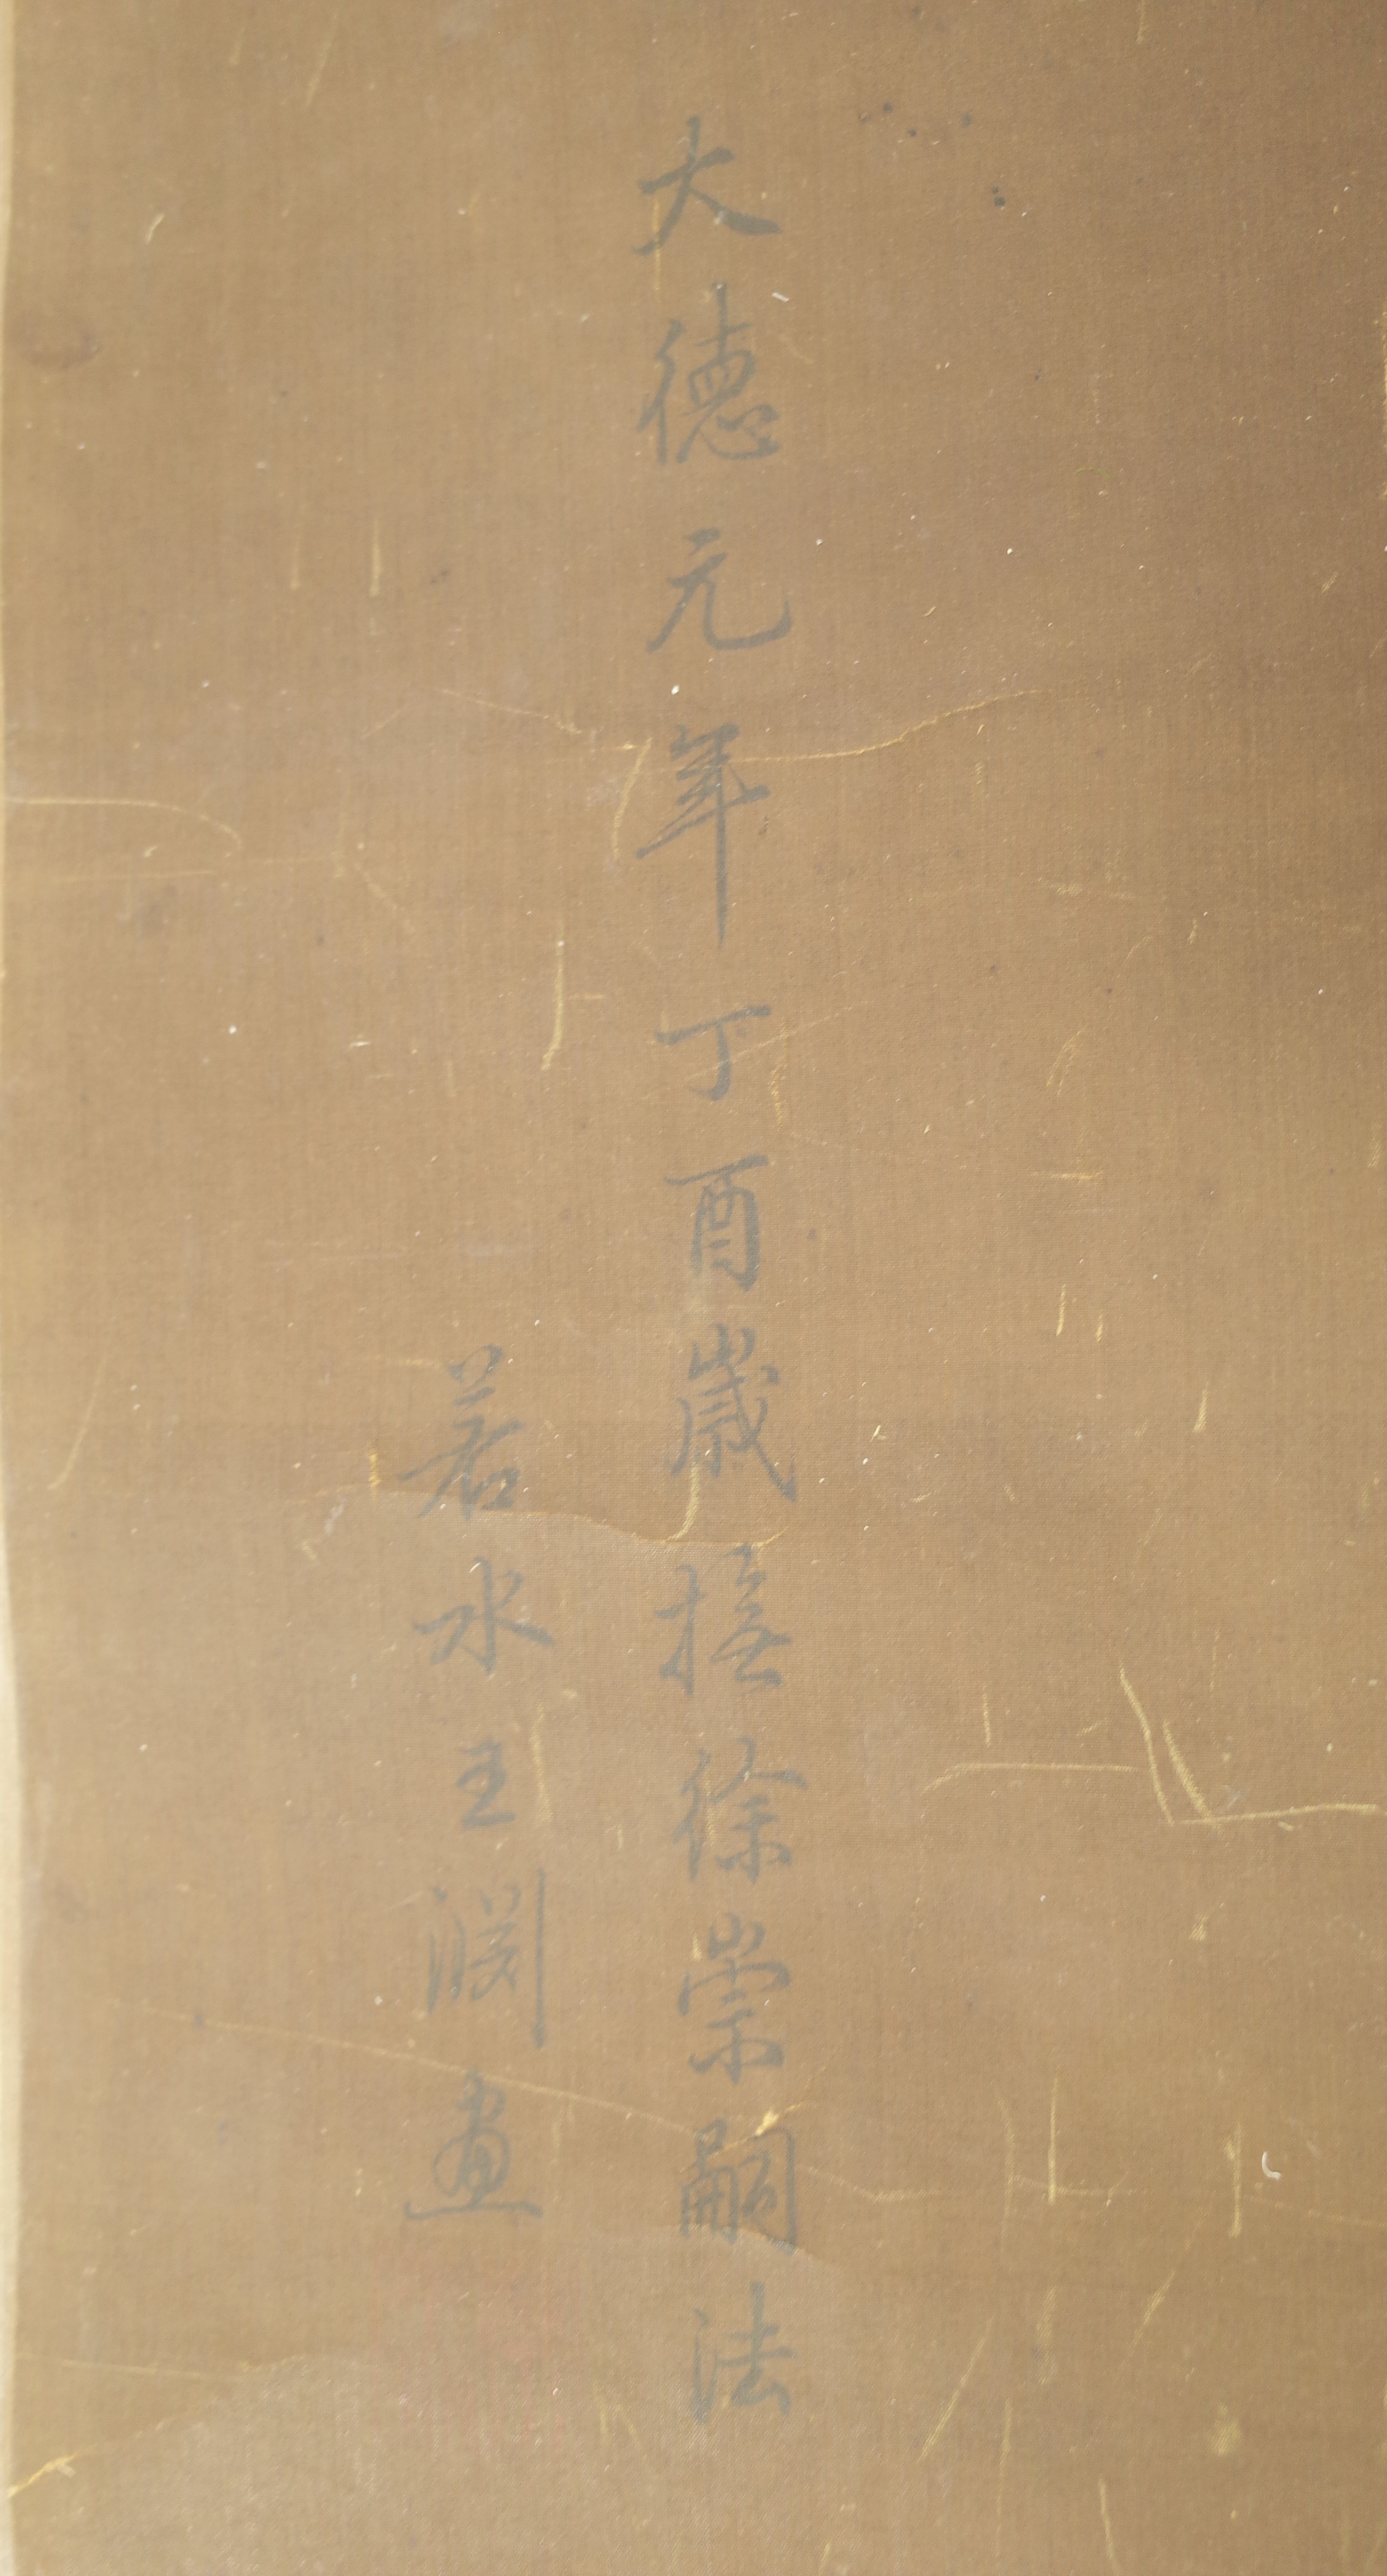 大德元年丁酉歲撫徐崇嗣法
若水王淵畫